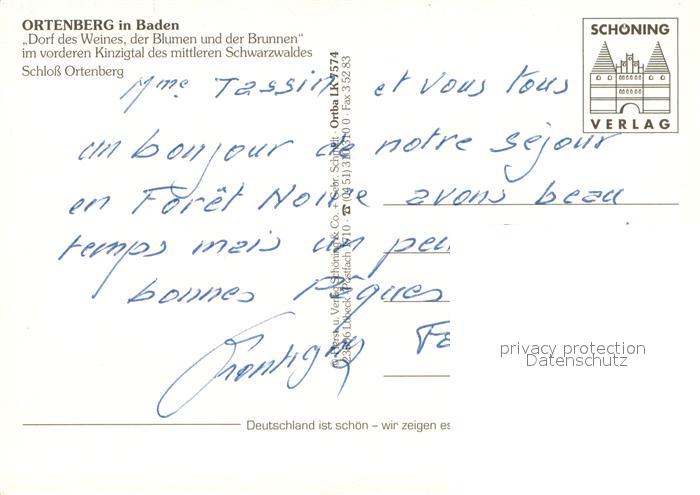 ORTENBERG in Baden
„Dorf des Weines, der Blumen und der Brunnen“
im vorderen Kinzigtal des mittleren Schwarzwaldes
Schloß Ortenberg
SCHÖNING
VERLAG
Mme Tassin et vous tous
un bonjour de notre séjour
en Forêt Noire avons beau
temps mais un peu
bonnes Pâques
Schöning & Co. + Gebr. Schmidt · Ortba LK 7574
Lübeck · Postfach 1710 · Fax 3 52 83
privacy protection
Datenschutz
Deutschland ist schön – wir zeigen es